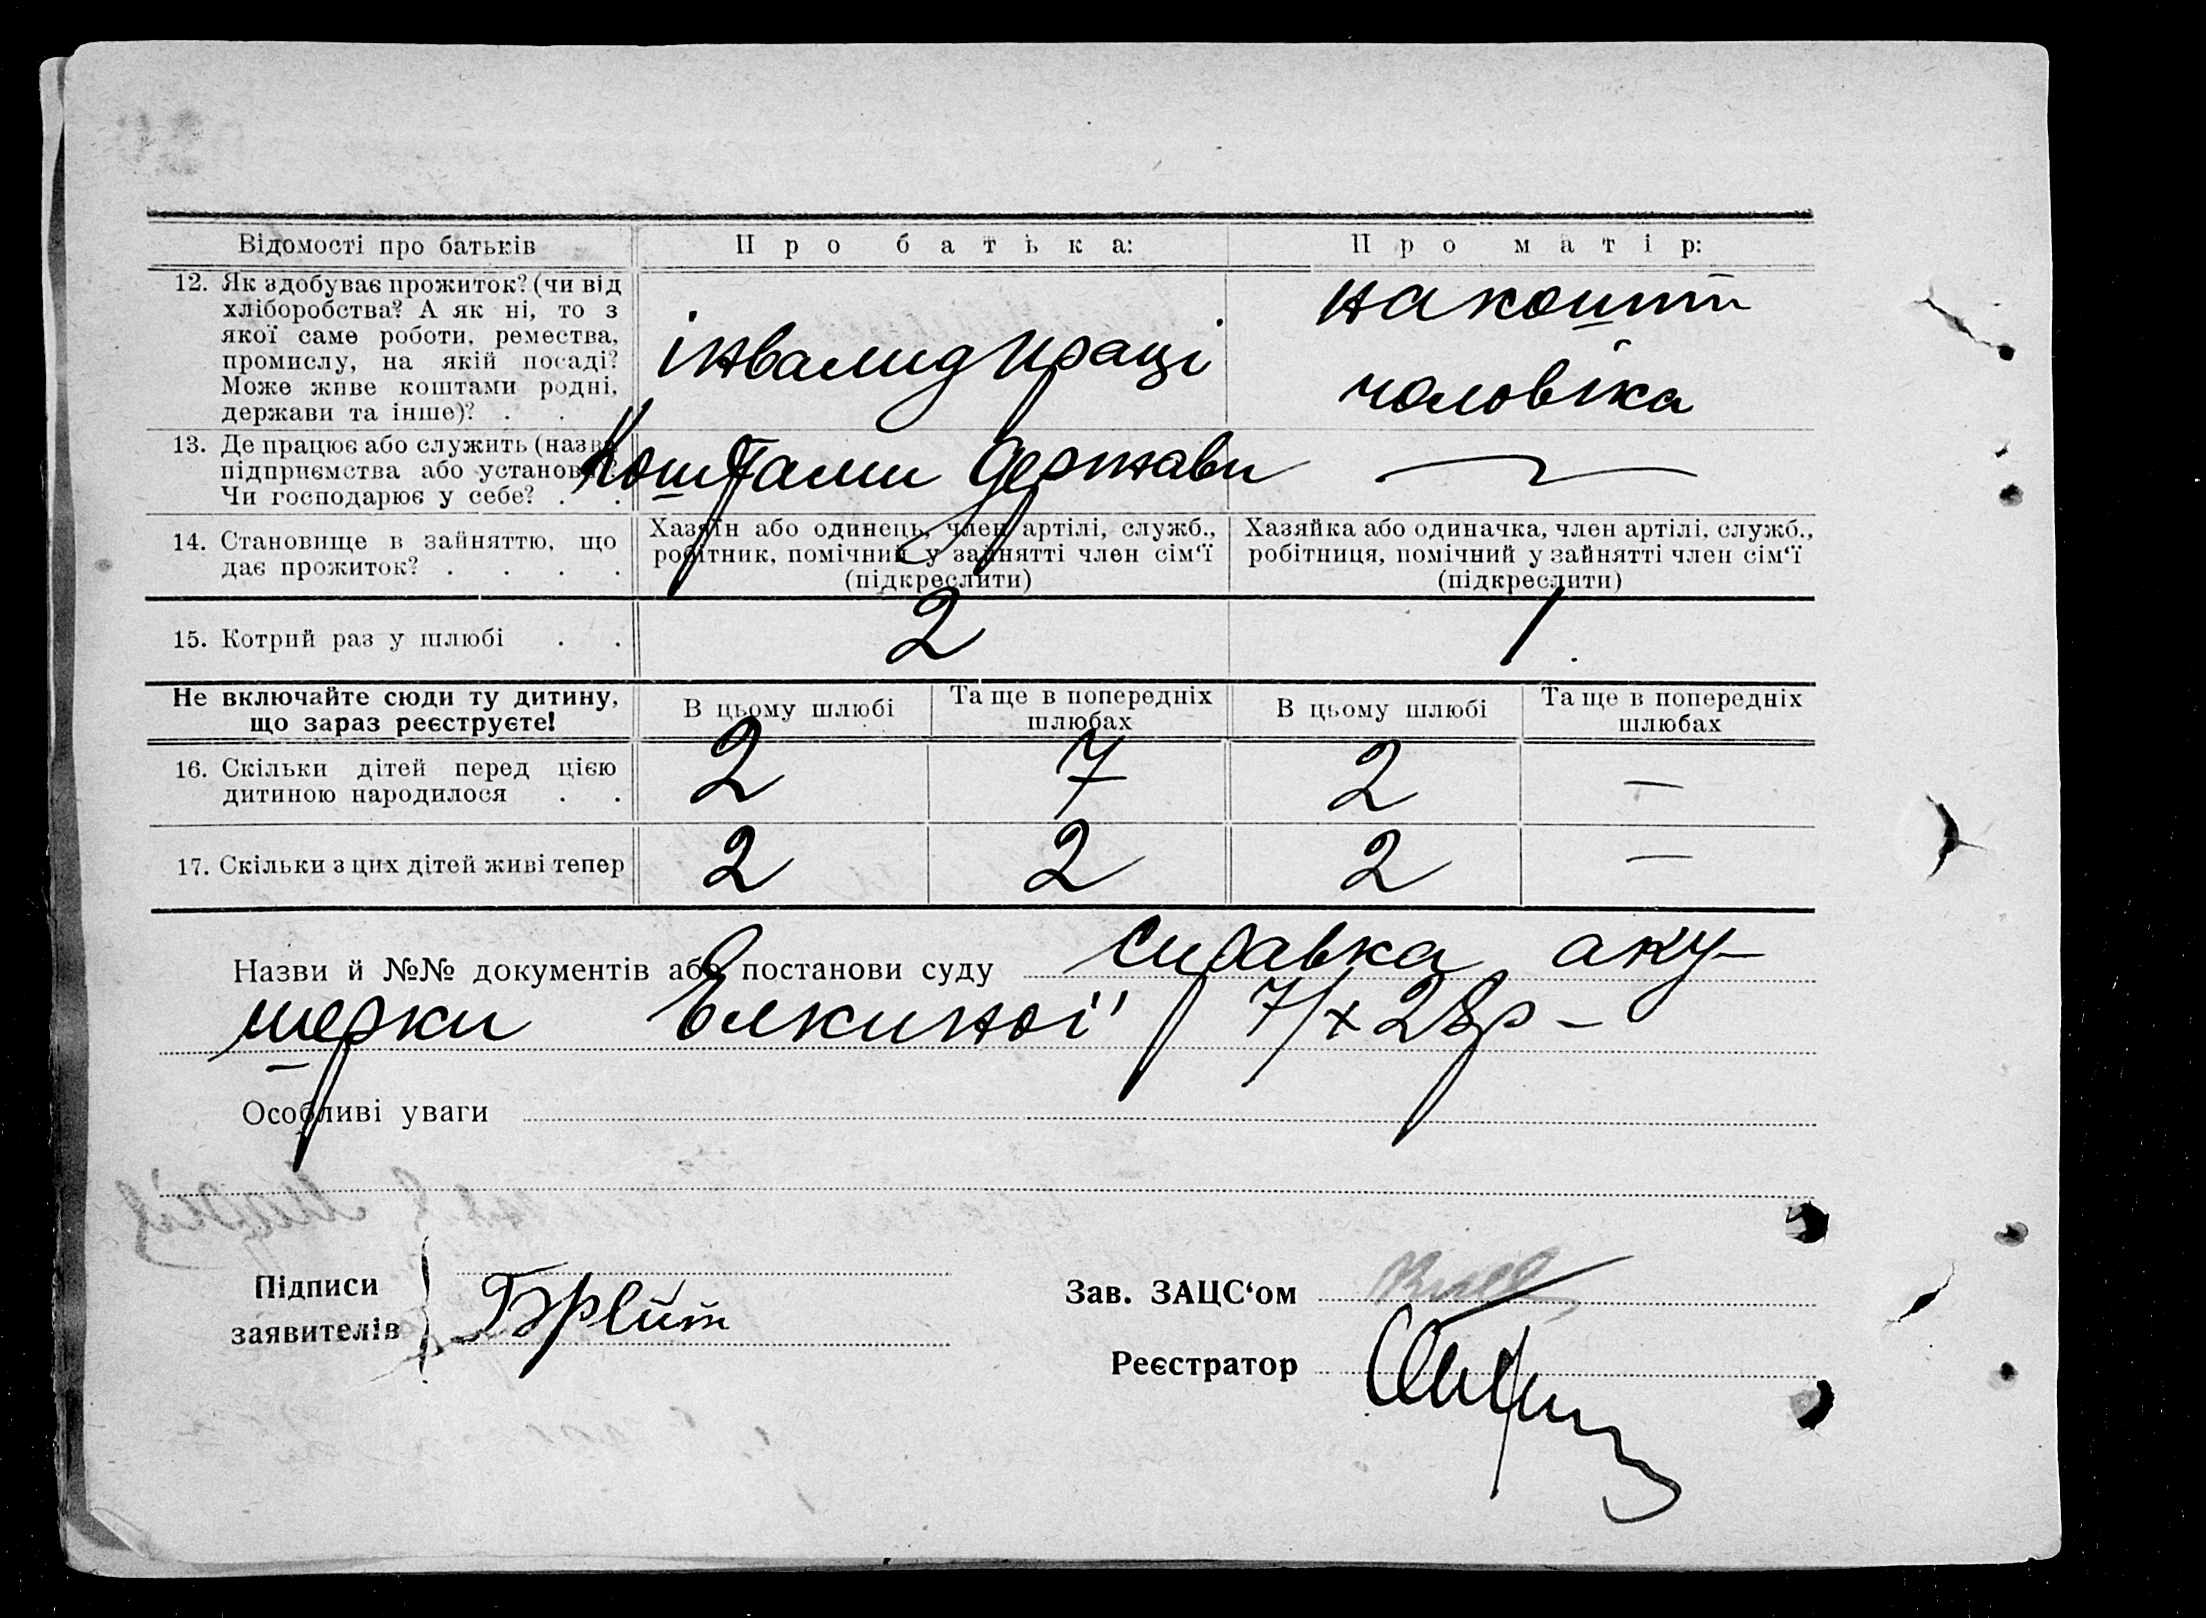 Відомості про батьків
Про батька:
Про матір:
12. Як здобуває прожиток? (чи від
хліборобства? А як ні, то з
якої саме роботи, ремества,
промислу, на якій посаді?
Може живе коштами родні,
держави та інше)? . .
інвалид праці
на кошти
чоловіка
13. Де працює або служить (назва
підприємства або установи)?
Чи господарює у себе? . .
Коштами держави
—
14. Становище в зайняттю, що
дає прожиток? . . . .
Хазяїн або одинець, член артілі, служб.,
робітник, помічний у зайнятті член сім‘ї
(підкреслити)
Хазяйка або одиначка, член артілі, служб.,
робітниця, помічний у зайнятті член сім‘ї
(підкреслити)
15. Котрий раз у шлюбі . .
2
1
Не включайте сюди ту дитину,
що зараз реєструєте!
В цьому шлюбі
Та ще в попередніх
шлюбах
В цьому шлюбі
Та ще в попередніх
шлюбах
16. Скільки дітей перед цією
дитиною народилося . .
2 7 2 —
17. Скільки з цих дітей живі тепер
2 2 2 —
Назви й №№ документів або постанови суду справка аку-
шерки Елкиної 7/X 28р –
Особливі уваги
Підписи
заявителів
Зав. ЗАЦС‘ом
Реєстратор